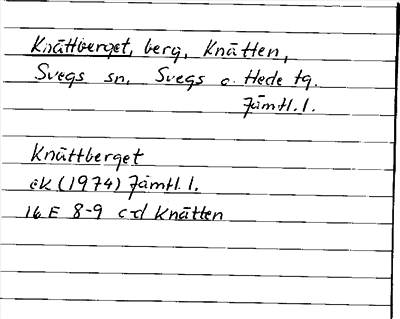 Knättberget, berg, Knätten,
Svegs sn. Svegs o. Hede tg.
Jämtl. l.
Knättberget
ek (1974) Jämtl. l.
16 E 8-9 c-d Knätten